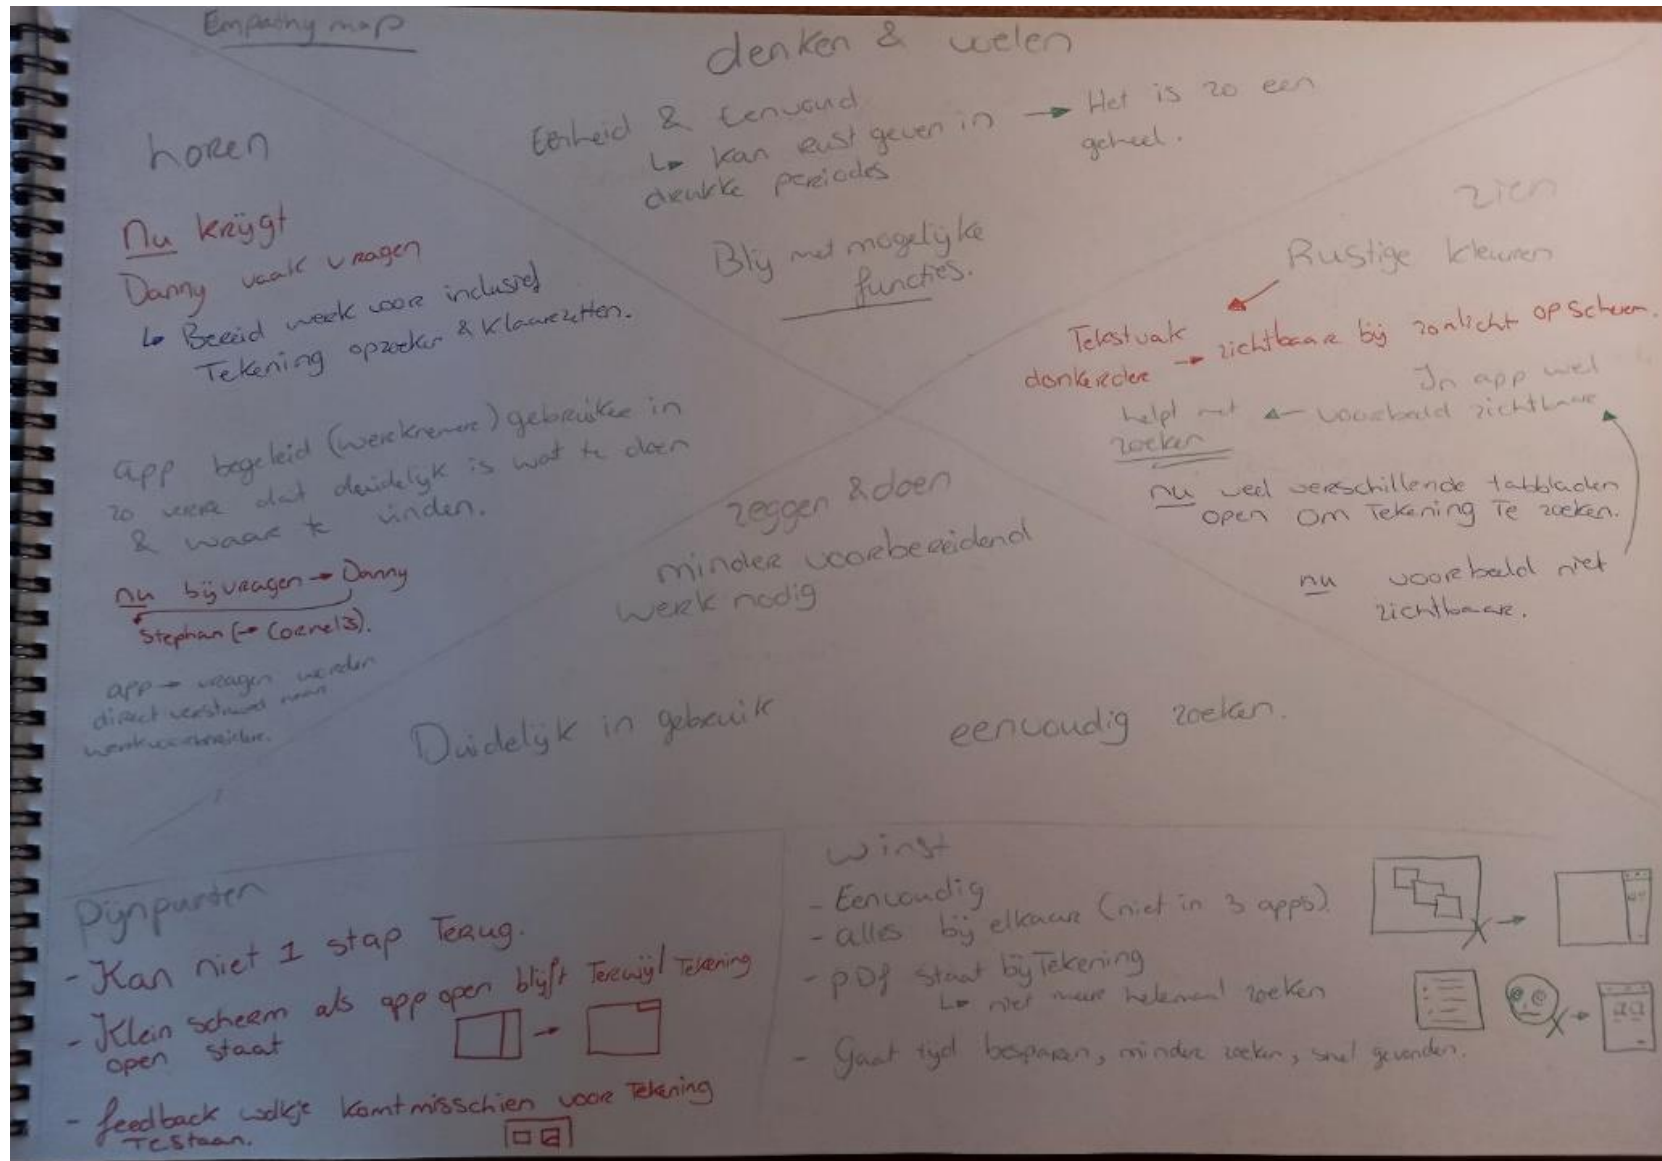 Empathy map
denken & welen
Eenheid & Eenvoud
↳ kan rust geven in
drukke periodes
→ Het is zo een
geheel.
Blij met mogelijke
functies.
horen
Nu krijgt
Danny vaak vragen
↳ Bereid week voor inclusief
Tekening opzoeken & klaarzetten.
app begeleid (werknemer) gebruiker in
zo verre dat duidelijk is wat te doen
& waar te vinden.
nu bij vragen → Danny
Stephan (→ Cornelis).
app → vragen worden
direct verstuurd naar
werkvoorbereider.
zien
Rustige kleuren
Tekstvak
donkerder → zichtbaar bij zonlicht op scherm.
In app wel
voorbeeld zichtbaar
helpt met
zoeken
nu veel verschillende tabbladen
open om Tekening Te zoeken.
nu voorbeeld niet
zichtbaar.
zeggen & doen
minder voorbereidend
werk nodig
Duidelijk in gebruik
eenvoudig zoeken.
Pijnpunten
- Kan niet 1 stap Terug.
- Klein scherm als app open blijft Terwijl Tekening
open staat
- feedback wolkje komt misschien voor Tekening
Te staan.
winst
- Eenvoudig
- alles bij elkaar (niet in 3 apps).
- pdf staat bij Tekening
↳ niet meer helemaal zoeken
- Gaat tijd besparen, minder zoeken, snel gevonden.